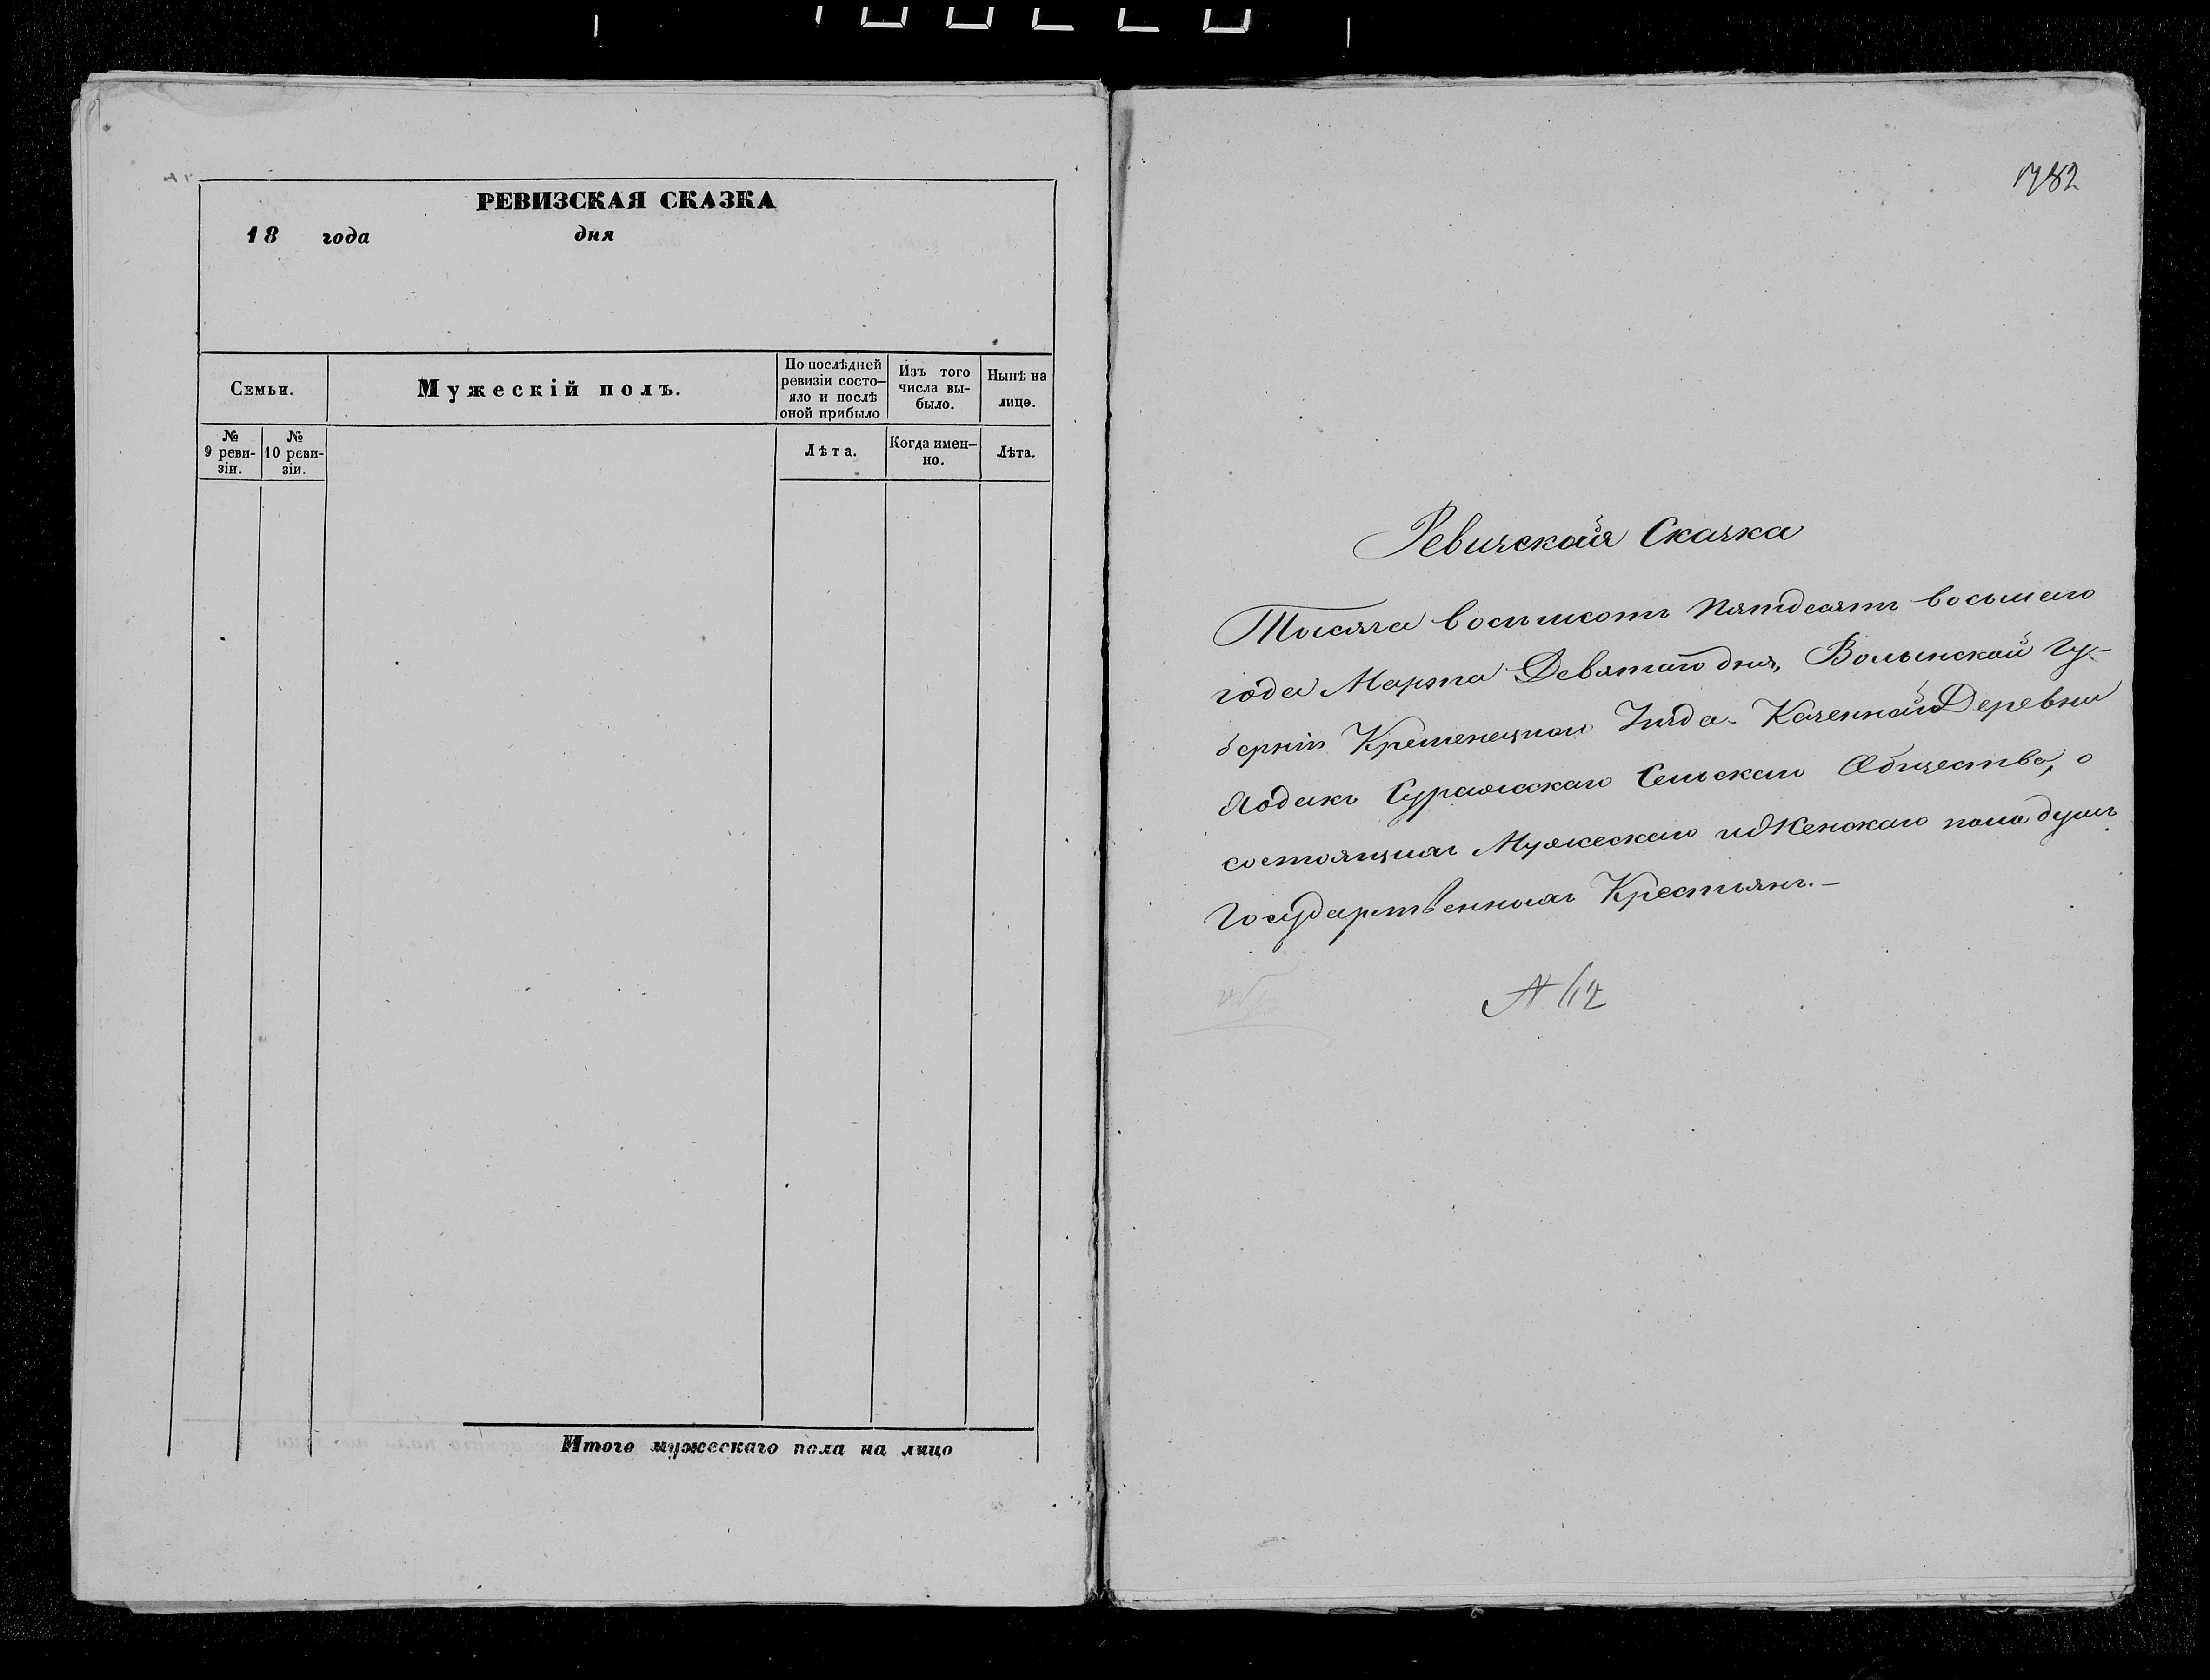 РЕВИЗСКАЯ СКАЗКА
18 года дня
Семьи.
Мужескій полъ.
По послѣдней ревизіи состо-
яло и послѣ
оной прибыло
Изъ того
числа вы-
было.
Нынѣ на
лицо.
№
9 реви-
зіи.
№
10 реви-
зіи.
Лѣта.
Когда имен-
но.
Лѣта.
Итого мужескаго пола на лицо
1782
Ревизская Сказка
Тысяча восемсотъ пятдесятъ восьмаго
года Марта Девятаго дня, Волынской гу-
берніи Кременецкаго Уѣзда Казенной Деревни
Лодзикъ Суражскаго Сельскаго Общества, о
состоящихъ Мужескаго и Женскаго пола душъ
Государственныхъ Крестьянъ.-
№ 12